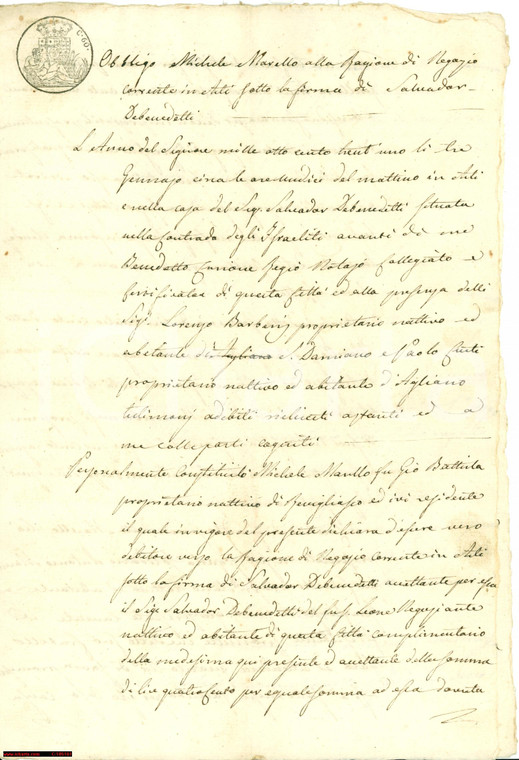 C. 60.
Obbligo Michele Marello alla Ragione di Negozio
corrente in Asti sotto la firma di Salvador
Debenedetti
L'Anno del Signore mille otto cento trent'uno li tre
Gennajo circa le ore undici del mattino in Asti
e nella casa del Sig. Salvador Debenedetti situata
nella Contrada degli Israeliti avanti di me
Benedetto Regio Notajo Collegiato e
di questa Città ed alla presenza delli
Sigi. Lorenzo Barberis proprietario nattivo ed
abitante di Agliano S. Damiano e Paolo
proprietario nattivo ed abitante d'Agliano
testimonj adibiti richiesti astanti ed a
me colle parti cogniti
Personalmente Constituito Michele Marello fu Gio Battista
proprietario nattivo di Revigliasco ed ivi residente
il quale in vigore del presente dichiara d'essere vero
debitore verso la Ragione di Negozio corrente in Asti
sotto la firma di Salvador Debenedetti accettante per essa
il Sigr Salvador Debenedetti del fu S. Leone Negoziante
nattivo ed abitante di questa Città complimentario
della medesima qui presente ed accettante della somma
di lire quattrocento per eguale somma ad essa dovuta